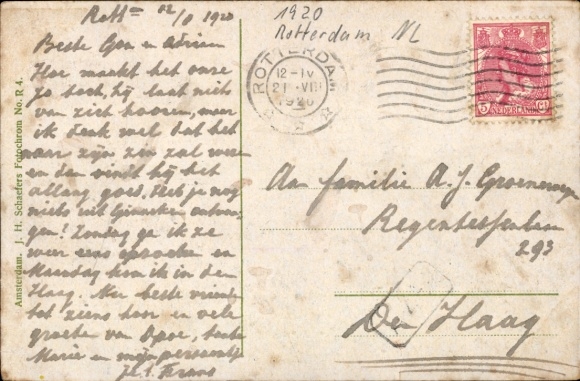 Rott 12/8 1920
Beste Gon en Adrien
Hoe maakt het onze
zo toch, hij laat niets
van zich hooren, maar
ik denk wel dat het
naar zijn zin zal wezen
en dan vindt hij het
allang goed, Heb je nog
niets uit Ginneken ontvan-
gen! Zondag ga ik ze
weer eens opzoeken en
Maandag kom ik in den
Haag. Nu beste vrienden
tot ziens hoor en vele
groeten van Opoe, tante
Marie en mijn persoontje
Frans
1920
Rotterdam NL
ROTTERDAM
12-IV
21 VIII
1920
5 CT
NEDERLAND
Aan familie A. J.
293
Den Haag
Amsterdam. J. H. Schaefers Fotochrom No. R 4.